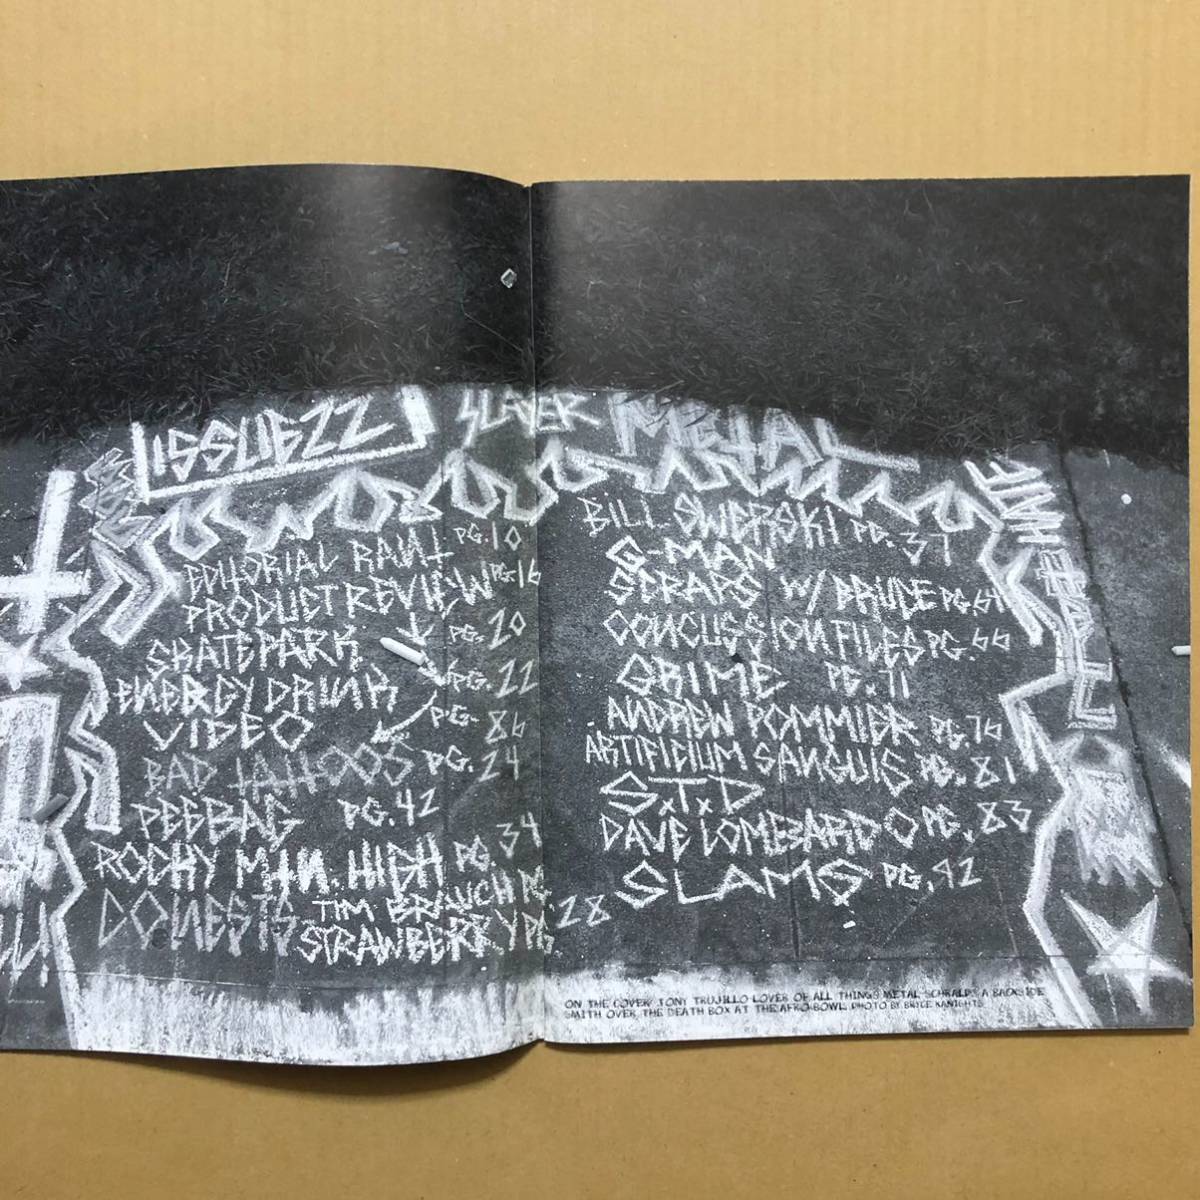 ISSUE22 SLAYER METAL
EDITORIAL RANT PG.10
PRODUCT REVIEW PG.16
SKATEPARK PG. 20
ENERGY DRINK PG.22
VIDEO PG. 86
BAD TATTOOS PG.24
PEEBAG PG.42
ROCKY MTN. HIGH PG.34
DONESTS TIM BRAUCH PG. 28
STRAWBERRY PG.
BILL SWERSKI PG.37
G-MAN
SCRAPS W/ BRUCE PG 64
CONCUSSION FILES PG.66
GRIME PG.71
ANDREW POMMIER PG.76
ARTIFICIUM SANGUIS PG.81
SxTxD
DAVE LOMBARDO PG.83
SLAMS PG.42
ON THE COVER TONY TRUJILLO LOVER OF ALL THINGS METAL SCHRALPS A BACKSIDE
SMITH OVER THE DEATH BOX AT THE AFRO-BOWL. PHOTO BY BRYCE KANIGHTS